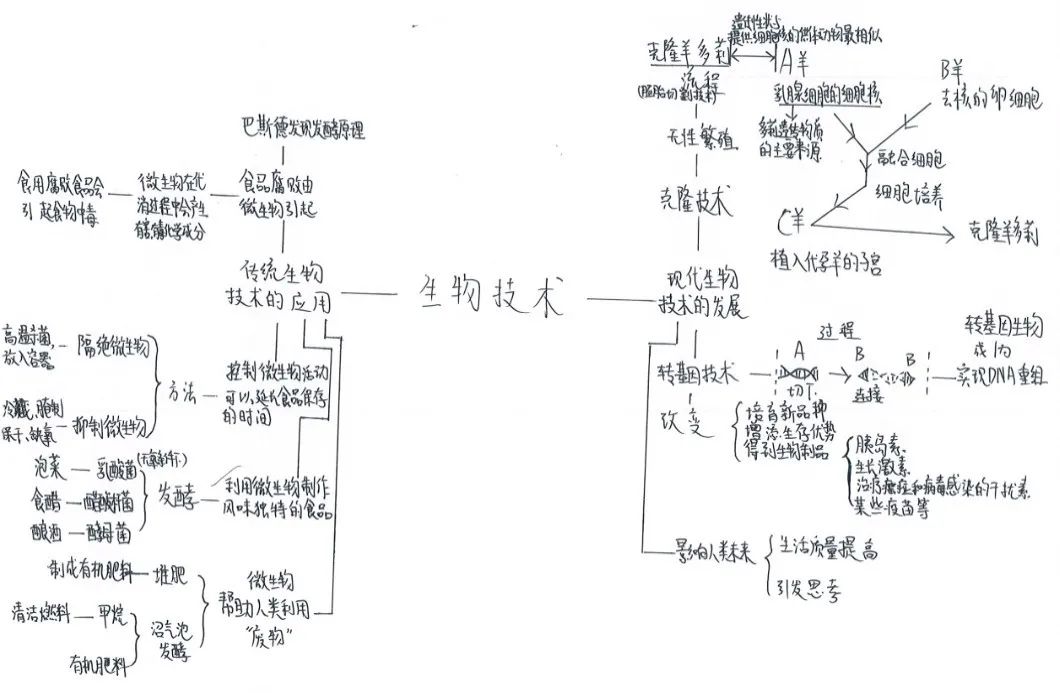 生物技术
传统生物
技术的应用
食品腐败由
微生物引起
巴斯德发现发酵原理
微生物在代
谢过程中会产生
有毒的化学成分
食用腐败食品会
引起食物中毒
控制微生物活动
可以延长食品保存
的时间
方法
隔绝微生物
高温杀菌,
放入容器
抑制微生物
冷藏、腌制
风干、缺氧
利用微生物制作
风味独特的食品
发酵
泡菜—乳酸菌
食醋—醋酸杆菌
酿酒—酵母菌
微生物
帮助人类利用
“废物”
堆肥
制成有机肥料
沼气池
发酵
甲烷
清洁燃料
有机肥料
现代生物
技术的发展
克隆技术
无性繁殖
流程
克隆羊多莉
遗传性状与
提供细胞核的供体动物最相似
A羊
乳腺细胞的细胞核
多莉遗传物质
的主要来源
B羊
去核的卵细胞
融合细胞
细胞培养
C羊
植入代孕羊的子宫
克隆羊多莉
转基因技术
过程
A
切下
B
B
连接
转基因生物
成为
实现DNA重组
改变
培育新品种
增添生存优势
得到生物制品
胰岛素
生长激素
治疗癌症和病毒感染的干扰素
某些疫苗等
影响人类未来
生活质量提高
引发思考